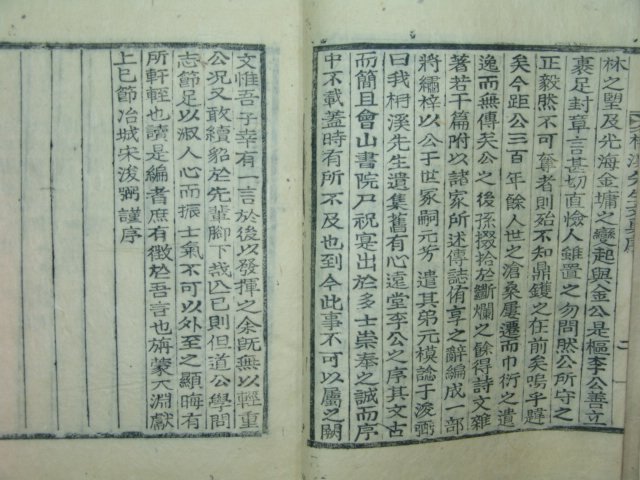 林之塱及光海金墉之變起與金公是樞李公善立
裹足封章言甚切直儉人雖置之勿問然公所守之
正毅然不可奪者則殆不知鼎鑊之在前矣嗚乎韙
矣今距公三百年餘人世之滄桑屢遷而巾衍之遺
逸而無傳矣公之後孫掇拾於斷爛之餘得詩文雜
著若干篇附以諸家所述傳誌侑享之辭編成一部
將繡梓以公于世冢嗣元芳遣其弟元模諗于浚弼
曰我桐溪先生遺集舊有心遠堂李公之序其文古
而簡且會山書院尸祝宴出於多士崇奉之誠而序
中不載蓋時有所不及也到今此事不可以屬之闕
文惟吾子幸有一言於後以發揮之余旣無以輕重
公況又敢續貂於先輩脚下哉匹已則但道公學問
志節足以淑人心而振士氣不可以外至之顯晦有
所軒輊也讀是編者庶有徵於吾言也旃蒙大淵獻
上巳節冶城宋浚弼謹序